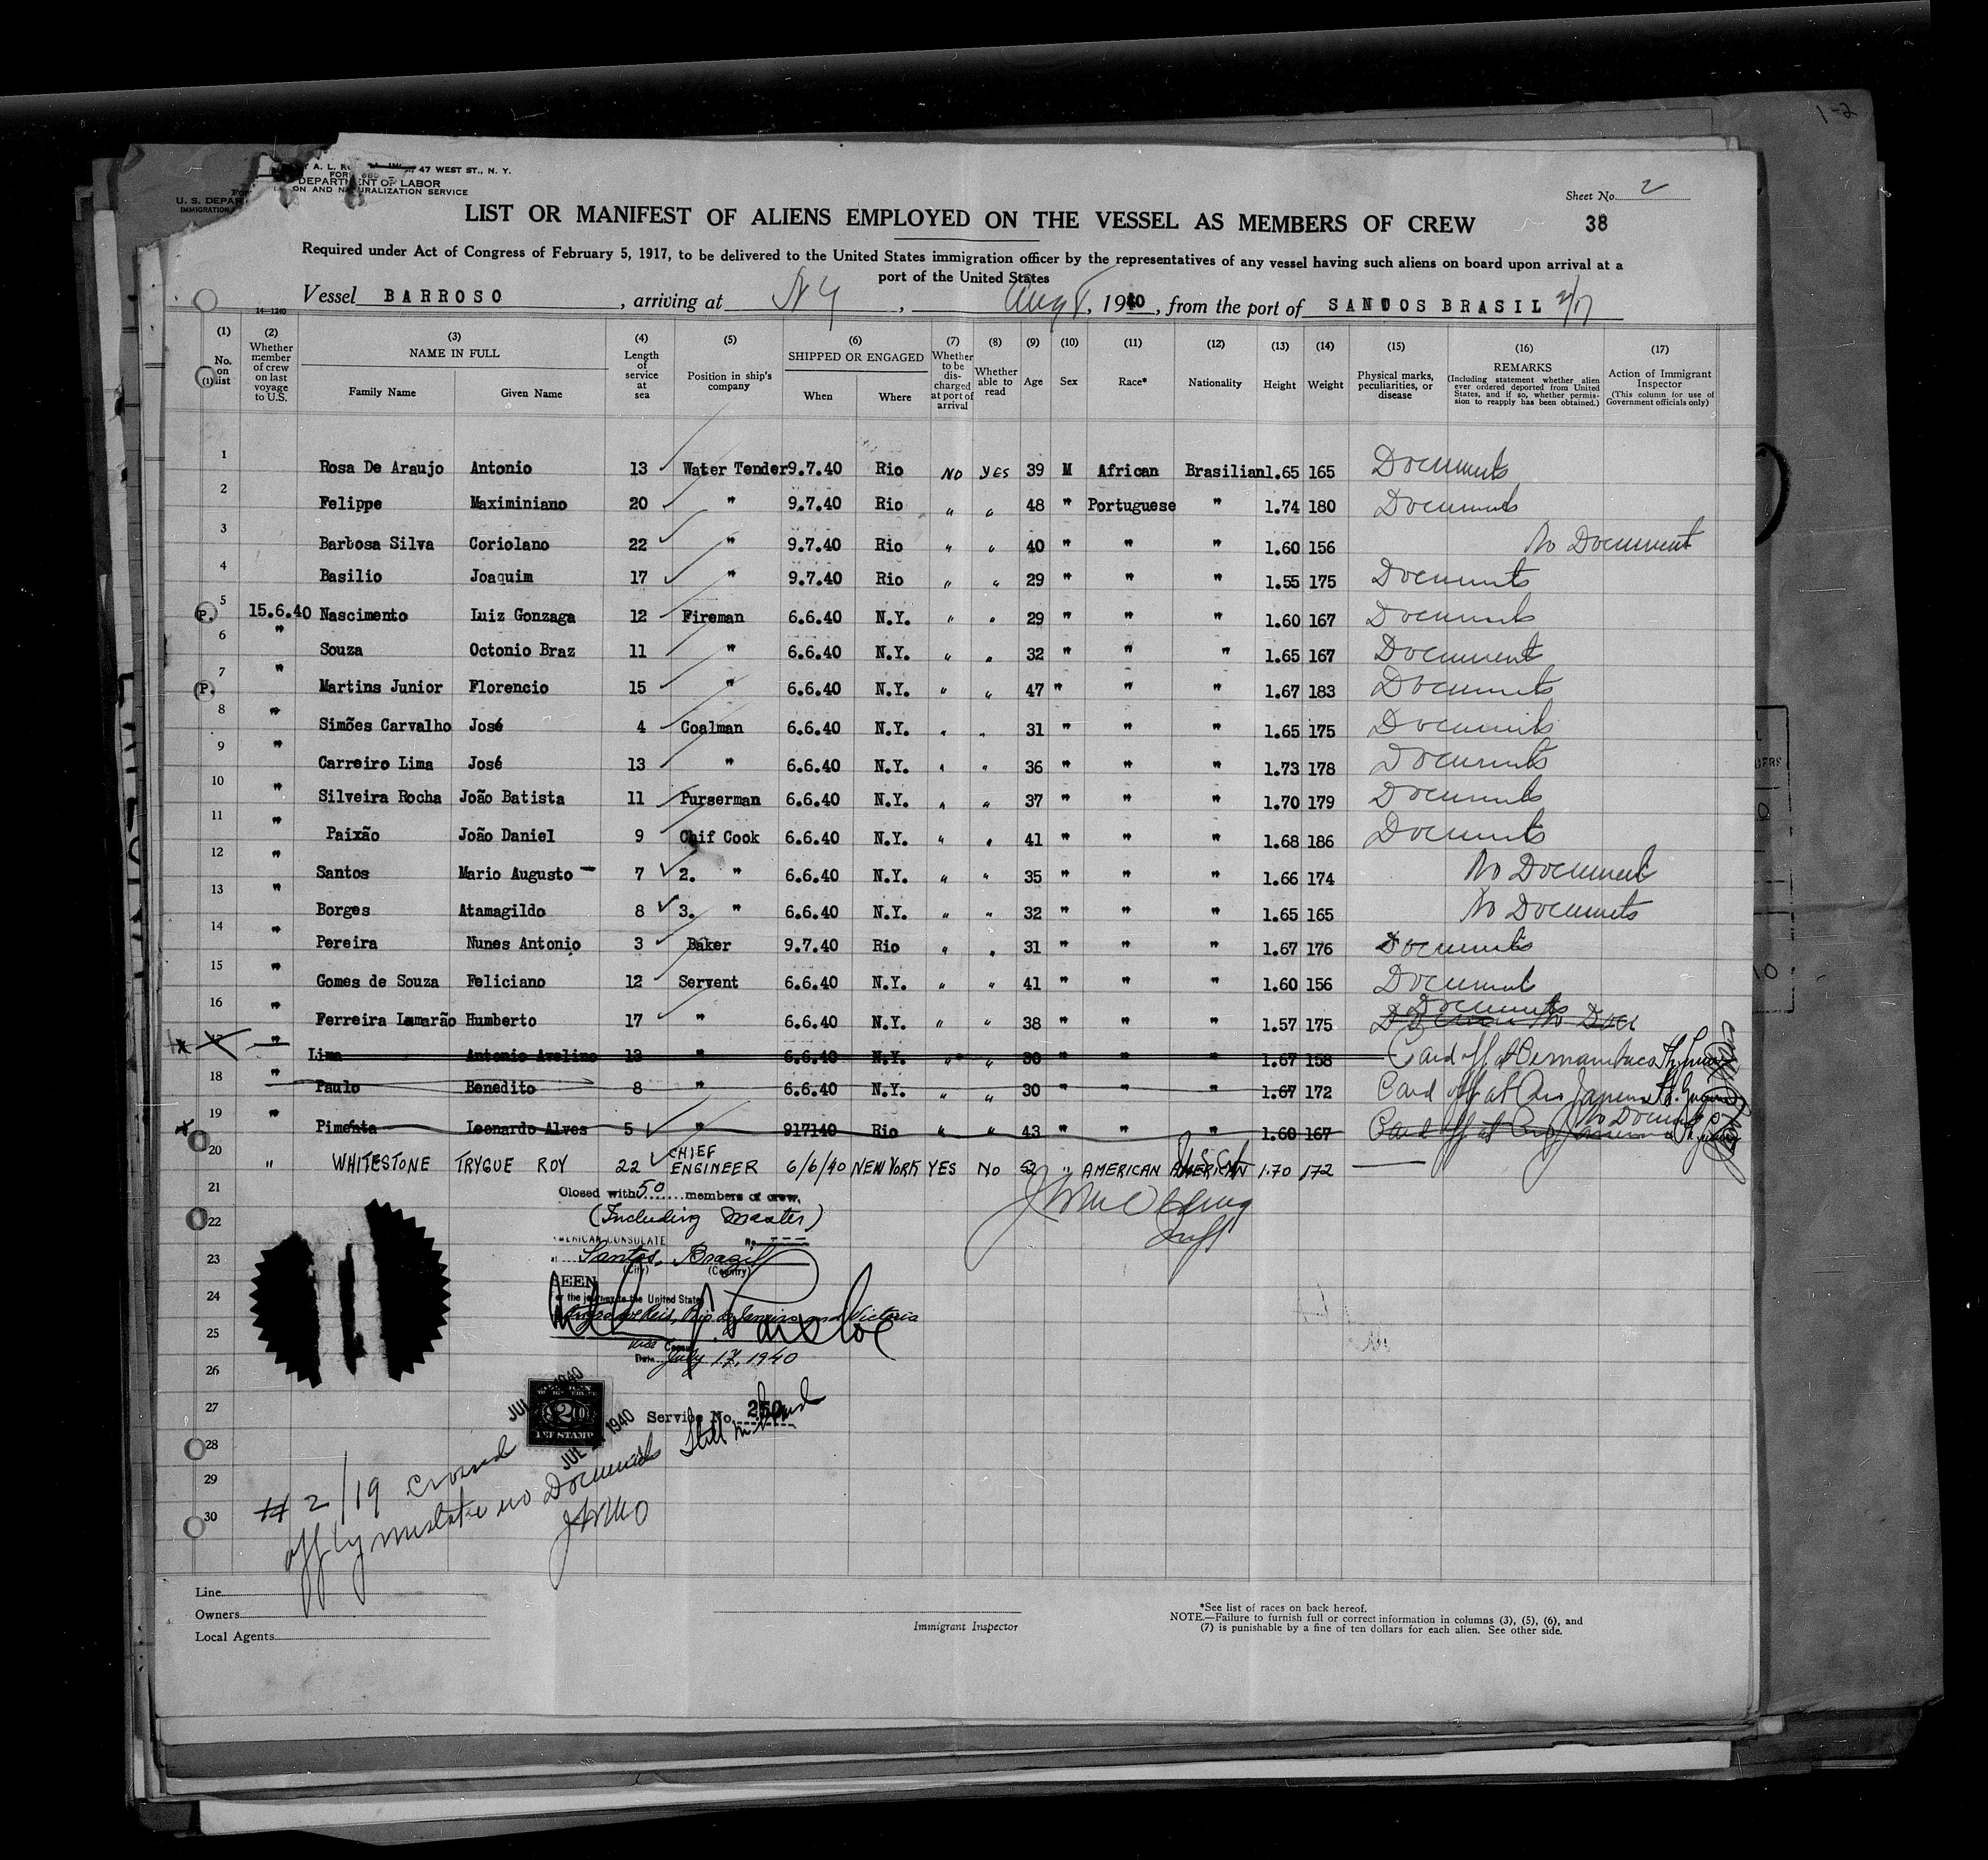 47 WEST ST., N. Y.
DEPARTMENT OF LABOR
ON AND NATURALIZATION SERVICE
U. S. DEPAR
IMMIGRATION
1-2
Sheet No. 2
LIST OR MANIFEST OF ALIENS EMPLOYED ON THE VESSEL AS MEMBERS OF CREW
38
Required under Act of Congress of February 5, 1917, to be delivered to the United States immigration officer by the representatives of any vessel having such aliens on board upon arrival at a
port of the United States
Vessel BARROSO, arriving at N Y, Aug 8, 1940, from the port of SANTOS BRASIL 2/17
14—1240
(1) (2) (3) (4) (5) (6) (7) (8) (9) (10) (11) (12) (13) (14) (15) (16) (17)
No. on list Whether member of crew on last voyage to U.S. NAME IN FULL Family Name Given Name Length of service at sea Position in ship's company SHIPPED OR ENGAGED When Where Whether to be discharged at port of arrival Whether able to read Age Sex Race* Nationality Height Weight Physical marks, peculiarities, or disease REMARKS (Including statement whether alien ever ordered deported from United States, and if so, whether permission to reapply has been obtained.) Action of Immigrant Inspector (This column for use of Government officials only)
1 Rosa De Araujo Antonio 13 Water Tender 9.7.40 Rio NO YES 39 M African Brasilian 1.65 165 Documents
2 Felippe Maximiniano 20 " 9.7.40 Rio " " 48 " Portuguese " 1.74 180 Documents
3 Barbosa Silva Coriolano 22 " 9.7.40 Rio " " 40 " " " 1.60 156 No Document
4 Basilio Joaquim 17 " 9.7.40 Rio " " 29 " " " 1.55 175 Documents
P. 5 15.6.40 Nascimento Luiz Gonzaga 12 Fireman 6.6.40 N.Y. " " 29 " " " 1.60 167 Documents
6 " Souza Octonio Braz 11 " 6.6.40 N.Y. " " 32 " " " 1.65 167 Document
P. 7 " Martins Junior Florencio 15 " 6.6.40 N.Y. " " 47 " " " 1.67 183 Documents
8 " Simões Carvalho José 4 Coalman 6.6.40 N.Y. " " 31 " " " 1.65 175 Documents
9 " Carreiro Lima José 13 " 6.6.40 N.Y. " " 36 " " " 1.73 178 Documents
10 " Silveira Rocha João Batista 11 Purserman 6.6.40 N.Y. " " 37 " " " 1.70 179 Documents
11 " Paixão João Daniel 9 Chif Cook 6.6.40 N.Y. " " 41 " " " 1.68 186 Documents
12 " Santos Mario Augusto 7 2. " 6.6.40 N.Y. " " 35 " " " 1.66 174 No Document
13 " Borges Atamagildo 8 3. " 6.6.40 N.Y. " " 32 " " " 1.65 165 No Documets
14 " Pereira Nunes Antonio 3 Baker 9.7.40 Rio " " 31 " " " 1.67 176 Documents
15 " Gomes de Souza Feliciano 12 Servent 6.6.40 N.Y. " " 41 " " " 1.60 156 Document
16 " Ferreira Lamarão Humberto 17 " 6.6.40 N.Y. " " 38 " " " 1.57 175 Documents
17 " Lima Antonio Avelino 13 " 6.6.40 N.Y. " " 30 " " " 1.67 158 Card off at Pernambuco
18 " Paulo Benedito 8 " 6.6.40 N.Y. " " 30 " " " 1.67 172 Card off at Rio Janeiro
19 " Pimenta Leonardo Alves 5 " 917140 Rio " " 43 " " " 1.60 167 Card off at Rio Janeiro No Docum
20 " WHITESTONE TRYGUE ROY 22 CHIEF ENGINEER 6/6/40 NEW YORK YES NO 52 " AMERICAN AMERICAN 1.70 172
21 Closed with 50 members of crew.
22 (Including Master)
AMERICAN CONSULATE No. ---
23 Santos, Brazil
(City) (Country)
SEEN
24 the journey to the United States
Angra dos Reis, Rio de Janeiro and Victoria
25
Vice Consul
Date July 17, 1940
26
27 JUL 1940
Service No. 250
28 JUL 1940
29
30
# 2/19 crossed
off by mistake no Documents Still on board
JWMO
Line
Owners
Local Agents
Immigrant Inspector
*See list of races on back hereof.
NOTE.—Failure to furnish full or correct information in columns (3), (5), (6), and
(7) is punishable by a fine of ten dollars for each alien. See other side.